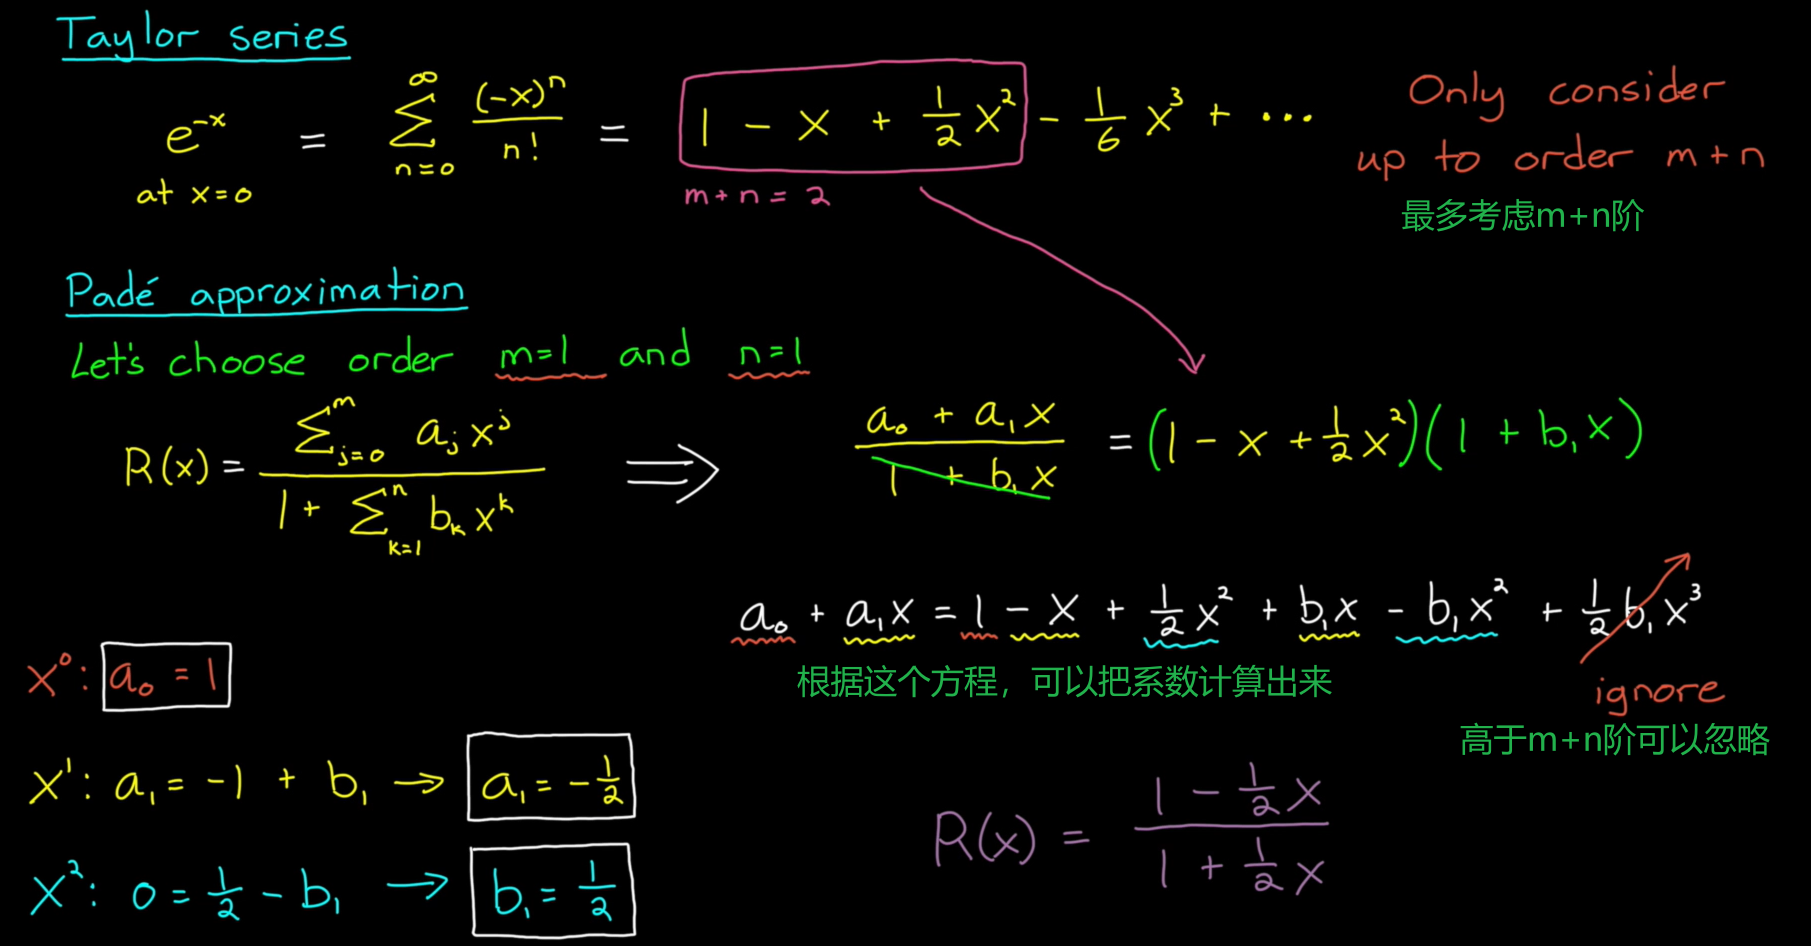 Taylor series
e^{-x} = \sum_{n=0}^{∞} \frac{(-x)^n}{n!} = 1 - x + \frac{1}{2}x^2 - \frac{1}{6}x^3 + ...
at x=0
m+n=2
Only consider
up to order m+n
最多考虑m+n阶
Padé approximation
Let's choose order m=1 and n=1
R(x) = \frac{\sum_{j=0}^{m} a_j x^j}{1 + \sum_{k=1}^{n} b_k x^k} ⟹ \frac{a_0 + a_1 x}{1 + b_1 x} = (1 - x + \frac{1}{2}x^2)(1 + b_1 x)
a_0 + a_1 x = 1 - x + \frac{1}{2}x^2 + b_1 x - b_1 x^2 + \frac{1}{2} b_1 x^3
根据这个方程，可以把系数计算出来
ignore
高于m+n阶可以忽略
x^0: a_0 = 1
x^1: a_1 = -1 + b_1 → a_1 = -\frac{1}{2}
x^2: 0 = \frac{1}{2} - b_1 → b_1 = \frac{1}{2}
R(x) = \frac{1 - \frac{1}{2}x}{1 + \frac{1}{2}x}